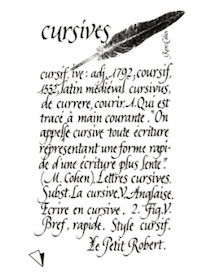 cursives
cursif, ive: adj. 1792, coursif,
1532, latin médiéval cursivus,
de currere, courir. 1. Qui est
tracé à main courante. "On
appelle cursive toute écriture
représentant une forme rapi-
de d'une écriture plus lente".
(M. Cohen). Lettres cursives.
Subst. La cursive. V. Anglaise.
Ecrire en cursive. 2. Fig. V.
Bref, rapide. Style cursif.
Le Petit Robert.